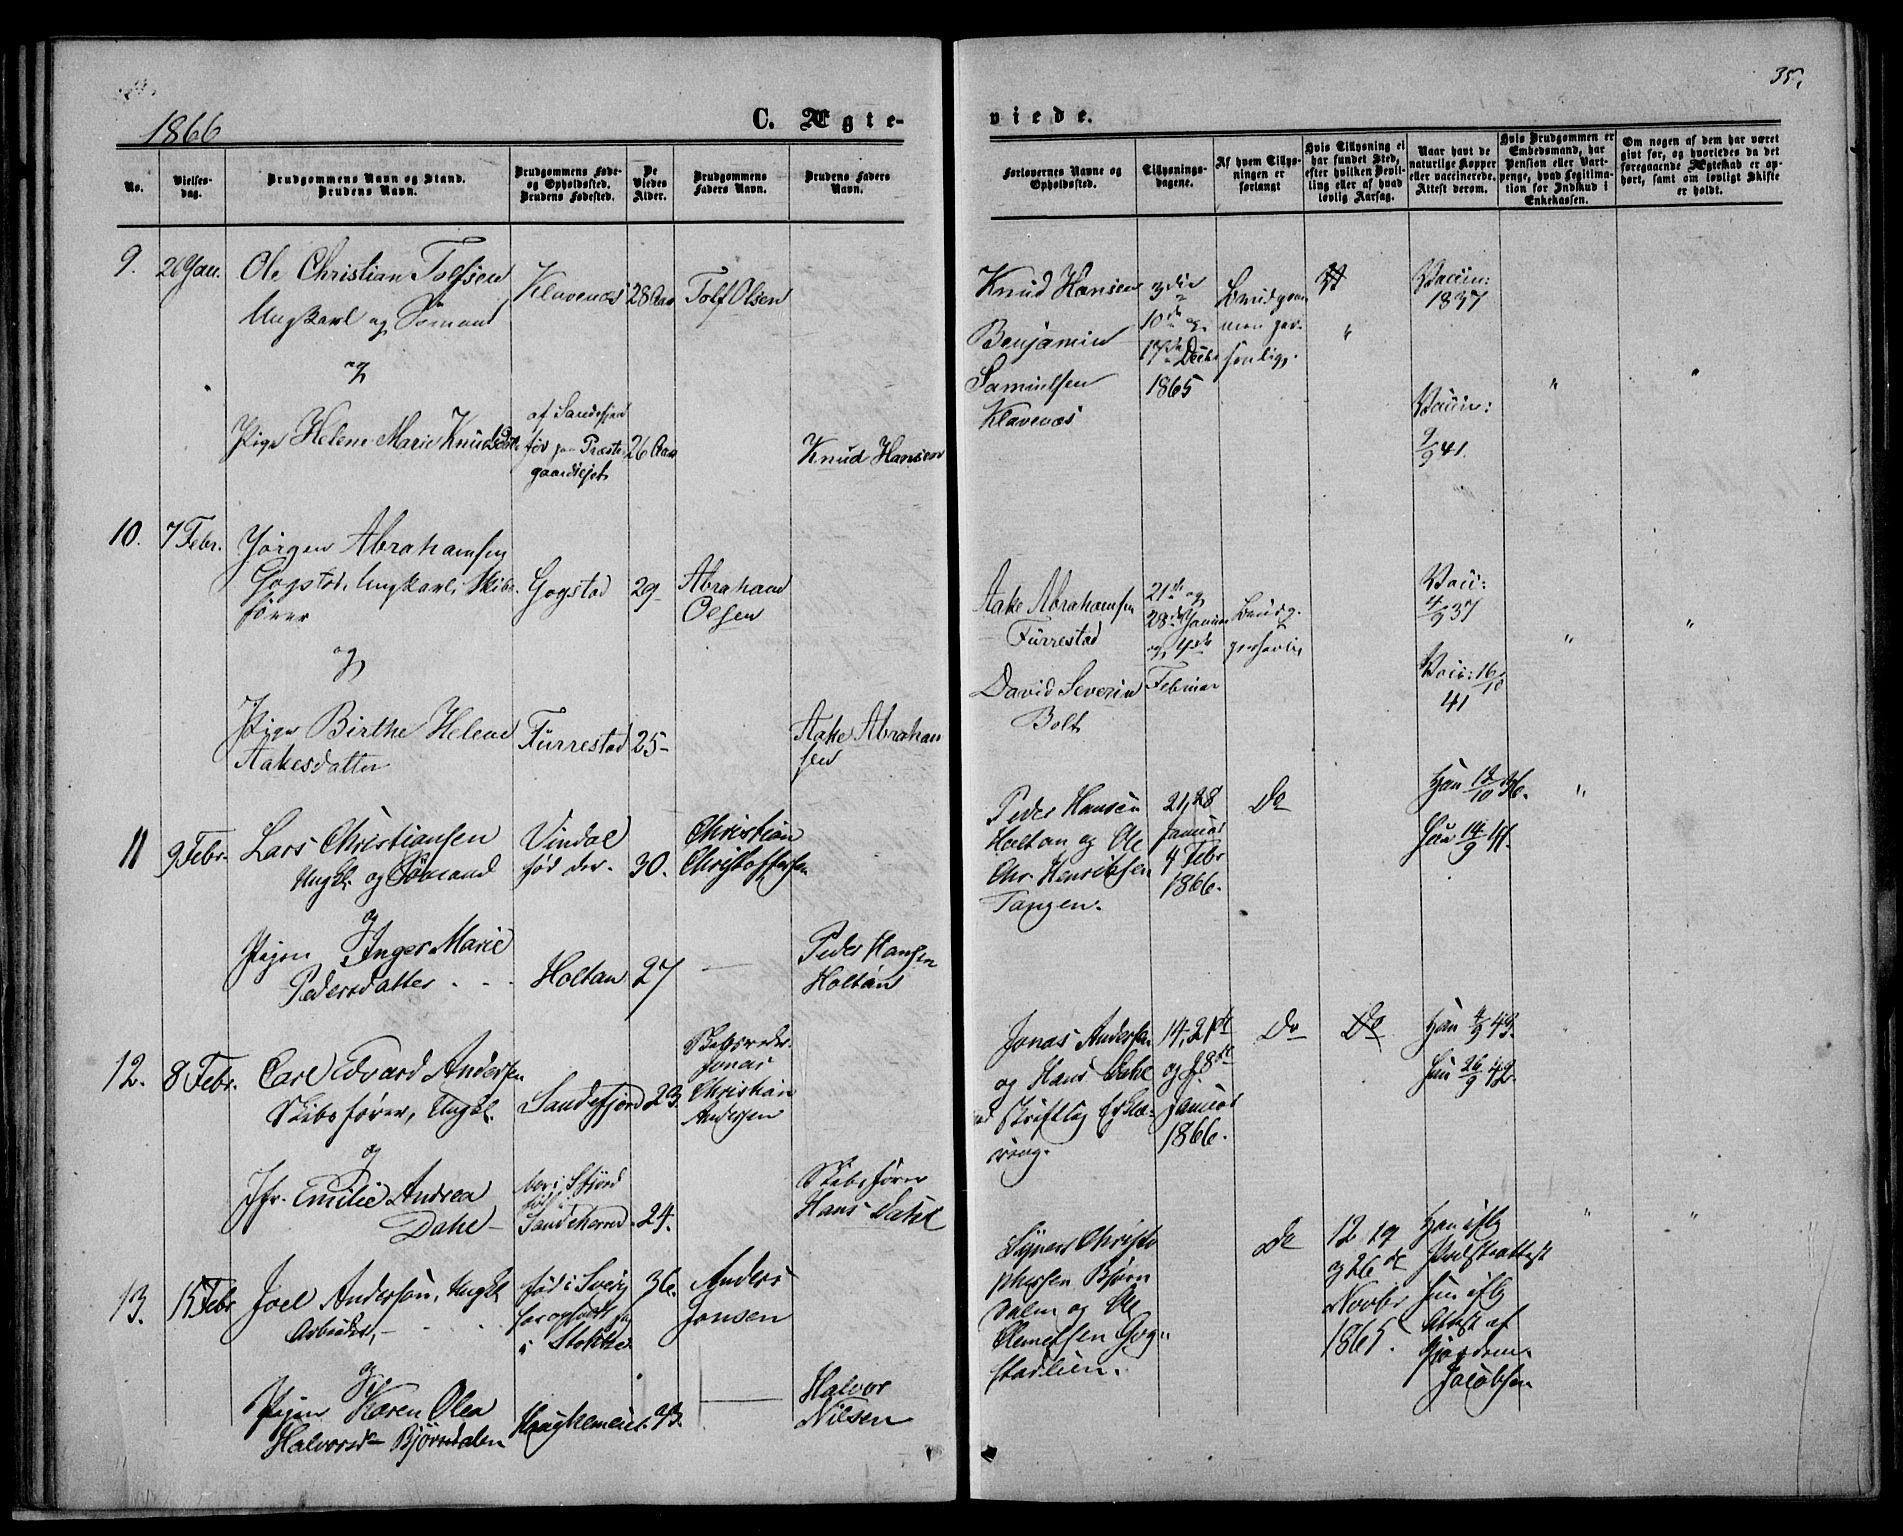 35.
1866
C. Ægte-
viede.
No.
Vielses-
dag.
Brudgommens Navn og Stand.
Brudens Navn.
Brudgommens Føde-
og Opholdssted.
Brudens Fødested.
De
Viedes
Alder.
Brudgommens
Faders Navn.
Brudens Faders
Navn.
Forlovernes Navne og
Opholdssted.
Tillysnings-
dagene.
Af hvem Tillys-
ningen er
forlangt
Hvis Tillysning ei
har fundet Sted,
efter hvilken Bevil-
ling eller af hvad
lovlig Aarsag.
Naar havt de
naturlige Kopper
eller vaccinerede.
Attest derom.
Hvis Brudgommen er
Embedsmand, har
Pension eller Vart-
penge, hvad Legitima-
tion for Indskud i
Enkekassen.
Om nogen af dem har været
givt før, og hvorledes da det
foregaaende Ægteskab er op-
hørt, samt om lovligt Skifte
er holdt.
9.
26 Jan.
Ole Christian Tolfsen
Ungkarl og Sömand
og
Pige Helene Marie Knudsdtr
Klavenæs
af Sandefjord
før paa Præste
gaardsejet
28 Aar
26 Aar
Tolf Olsen
Knud Hansen
Knud Hansen
Benjamin
Samuelsen
Klavenæs
3die
10de og
17de Decbr
1865
Brudgom
men per-
sonlig.
Vaccin:
1837
Vaccin:
9/9 41.
10.
7 Febr.
Jörgen Abrahamsen
Gogstad, Ungkarl, Skibs-
fører
og
Pige Birthe Helene
Aakesdatter
Gogstad
Furrestad
29-
25-
Abraham
Olsen
Aake Abraham
sen
Aake Abrahamsen
Furrestad
David Severin
Bolt
21de og
28de Januar
og 4de
Februar
Brudg.
personlig
Vacc:
37
Vacc: 16/10
41
11
9 Febr.
Lars Christiansen
Ungkl. og Sömand
og
Pigen Inger Marie
Pedersdatter
Vindal
fød der.
Holtan
30.
27
Christian
Christoffersen
Peder Hansen
Holtan
Peder Hansen
Holtan og Ole
Chr. Henriksen
Tangen.
21, 28
Januar
4 Febr
1866.
Do
Han 12/10 36.
Hun 14/9 41.
12.
8 Febr.
Carl Edvard Andersen
Skibsfører, Ungkl.
og
Jfr. Emilie Andrea
Dahl
Sandefjord
bor i Sfjord
född i
Sandeherred
23.
24.
Skibsreder
Jonas
Christian
Andersen
Skibsfører
Hans Dahl
Jonas Andersen
og Hans Dahl
Skriftlig Erklæ-
ring.
14, 21de
og 28de
Januar
1866.
Do
Do
Han 4/9 43.
Hun 26/9 42.
13.
15 Febr
Joel Anderson, Ungkl
Arbeider,
og
Pigen Karen Olea
Halvorsd. Björndalen
fød i Sverig
i Stokke
36.
Anders
Jonsen
Halvor
Nilsen
Christo
phersen Björn
dalen og Ole
Clemetsen Gog-
stadlien.
Do
12 19
og 26de
Novbr
1865.
Han iflg
Præsteattest
Hun iflg
Attest af
Jacobsen